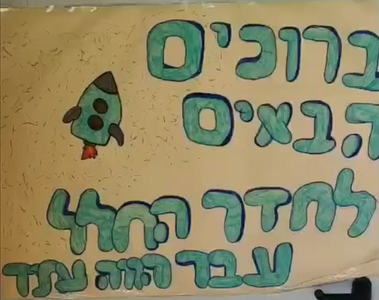 ברוכים
הבאים
לחדר החלל
עבר הווה עתיד